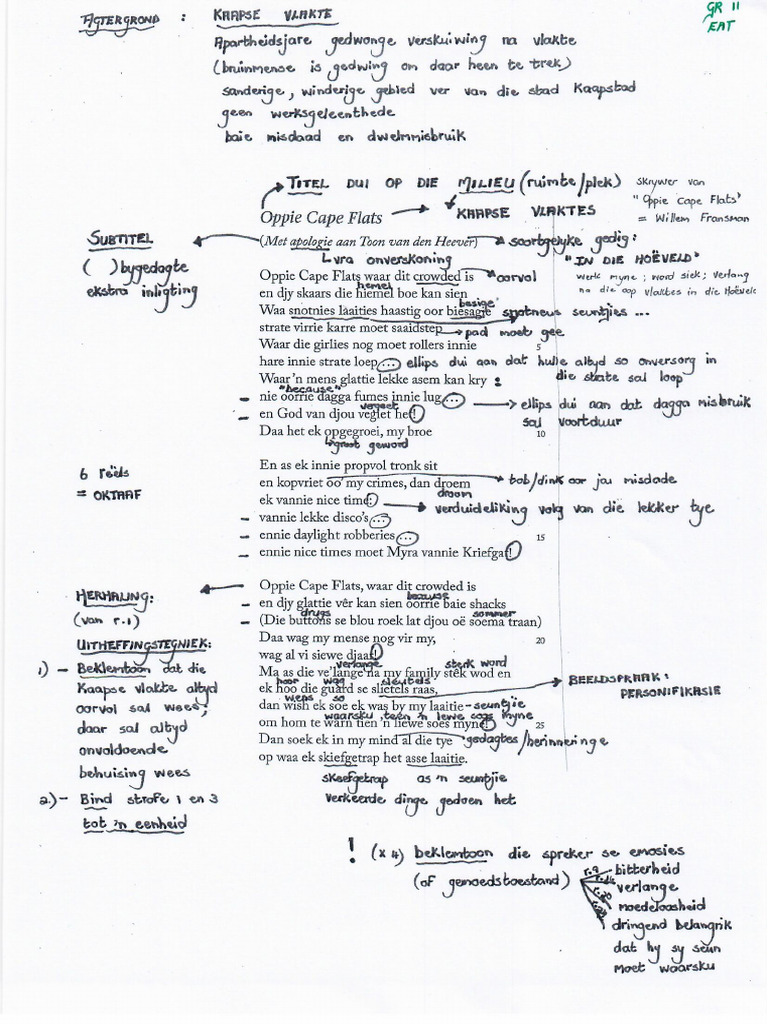 AGTERGROND : KAAPSE VLAKTE
GR 11
EAT
Apartheidsjare gedwonge verskuiwing na vlakte
(bruinmense is gedwing om daar heen te trek)
sanderige, winderige gebied ver van die stad Kaapstad
geen werksgeleenthede
baie misdaad en dwelmmisbruik
TITEL DUI OP DIE MILIEU (ruimte/plek)
skrywer van
"Oppie Cape Flats"
= Willem Fransman
Oppie Cape Flats
KAAPSE VLAKTES
SUBTITEL
( ) bygedagte
ekstra inligting
(Met apologie aan Toon van den Heever)
soortgelyke gedig:
vra onverskoning
"IN DIE HOËVELD"
werk myne ; word siek ; verlang
na die oop vlaktes in die Hoëveld
Oppie Cape Flats waar dit crowded is
oorvol
hemel
en djy skaars die hiemel boe kan sien
besige
Waa snotnies laaities haastig oor biesagie
snotneus seuntjies ...
strate virrie karre moet saaidstep
pad moet gee
Waar die girlies nog moet rollers innie
5
hare innie strate loep ...
ellips dui aan dat hulle altyd so onversorg in
die strate sal loop
Waar'n mens glattie lekke asem kan kry
"because"
nie oorrie dagga fumes innie lug ...
ellips dui aan dat dagga misbruik
sal voortduur
vergeet
en God van djou vegiet het!
Daa het ek opgegroei, my broe
10
groot geword
6 reëls
= OKTAAF
En as ek innie propvol tronk sit
en kopvriet oo my crimes, dan droem
tob/dink oor jou misdade
droom
ek vannie nice time:
verduideliking volg van die lekker tye
vannie lekke disco's ...
ennie daylight robberies ...
15
ennie nice times moet Myra vannie Kriefgat!
HERHALING:
(van r.1)
Oppie Cape Flats, waar dit crowded is
because
en djy glattie vêr kan sien oorrie baie shacks
drugs
sommer
(Die buttons se blou roek lat djou oë soema traan)
UITHEFFINGSTEGNIEK:
Daa wag my mense nog vir my,
20
wag al vi siewe djaar!
verlange
sterk word
Ma as die ve'lange na my family stêk wod en
hoor
wag
sleutels
ek hoo die guard se slietels raas,
BEELDSPRAAK:
PERSONIFIKASIE
wens
so
dan wish ek soe ek was by my laaitie
- seuntjie
waarsku teen 'n lewe soos myne
om hom te warn tien 'n liewe soes myne!
25
Dan soek ek in my mind al die tye
gedagtes/herinneringe
op waa ek skiefgetrap het asse laaitie.
skeefgetrap as 'n seuntjie
verkeerde dinge gedoen het
1) - Beklemtoon dat die
Kaapse vlakte altyd
oorvol sal wees;
daar sal altyd
onvoldoende
behuising wees
2) - Bind strofe 1 en 3
tot 'n eenheid
! (x 4) beklemtoon die spreker se emosies
(of gemoedstoestand)
r.9 bitterheid
verlange
moedeloosheid
dringend belangrik
dat hy sy seun
moet waarsku